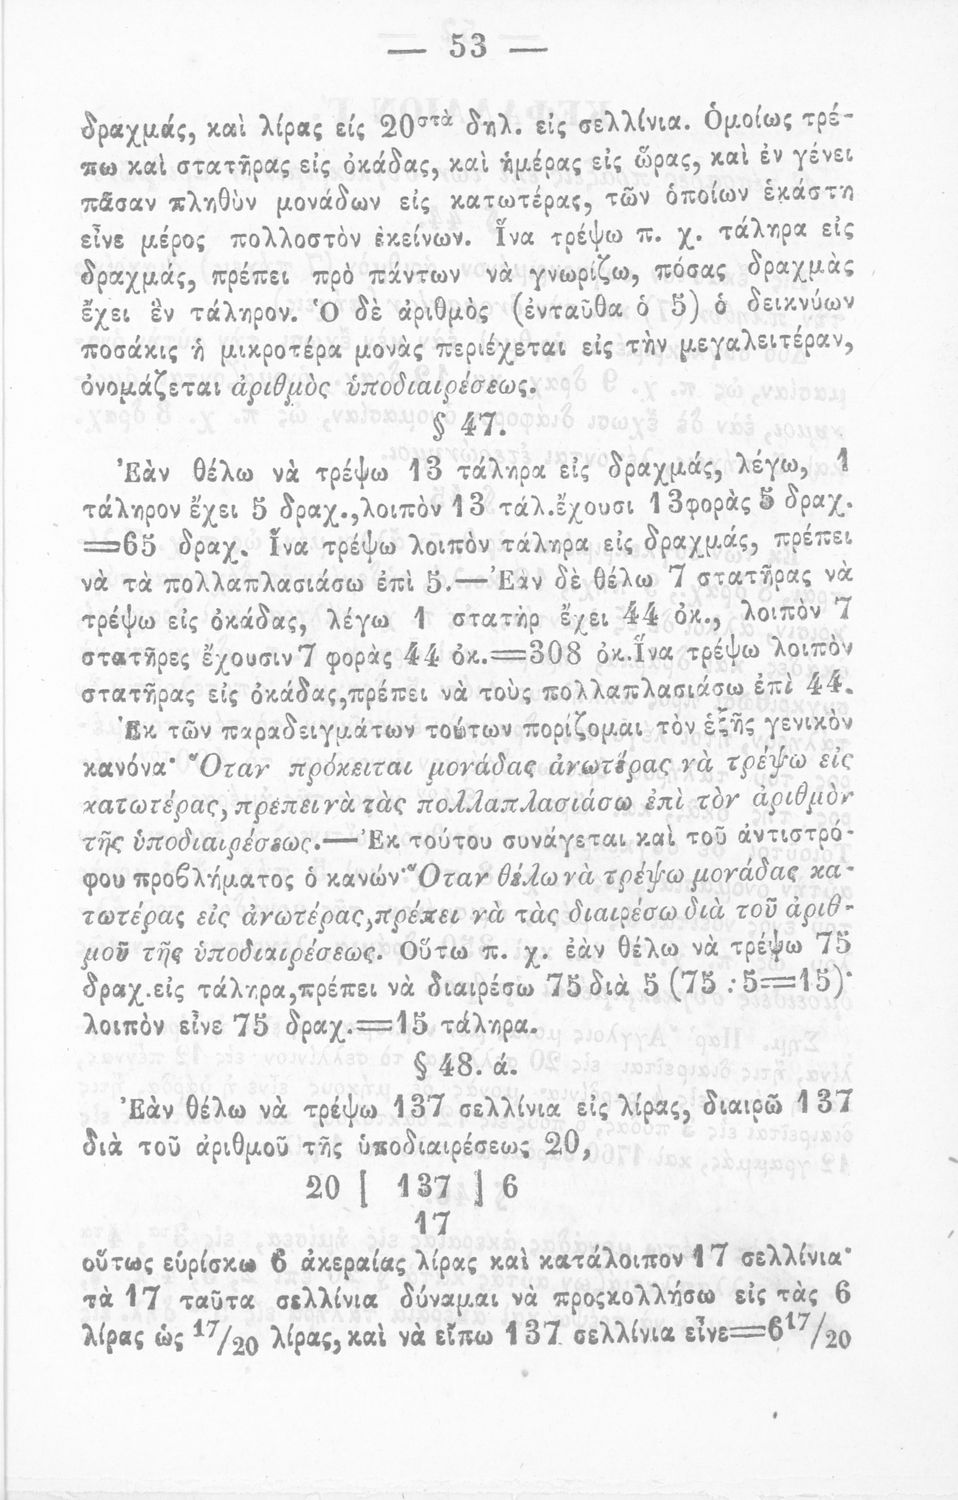 — 53 —
δραχμάς, καὶ λίρας εἰς 20στὰ δηλ. εἰς σελλίνια. Ὁμοίως τρέ-
πω καὶ στατῆρας εἰς ὀκάδας, καὶ ἡμέρας εἰς ὥρας, καὶ ἐν γένει
πᾶσαν πληθὺν μονάδων εἰς κατωτέρας, τῶν ὁποίων ἑκάστη
εἶνε μέρος πολλοστὸν ἐκείνων. Ἵνα τρέψω π. χ. τάληρα εἰς
δραχμάς, πρέπει πρὸ πάντων νὰ γνωρίζω, πόσας δραχμὰς
ἔχει ἓν τάληρον. Ὁ δὲ ἀριθμὸς (ἐνταῦθα ὁ 5) ὁ δεικνύων
ποσάκις ἡ μικροτέρα μονὰς περιέχεται εἰς τὴν μεγαλειτέραν,
ὀνομάζεται ἀριθμὸς ὑποδιαιρέσεως.
§ 47.
Ἐὰν θέλω νὰ τρέψω 13 τάληρα εἰς δραχμάς, λέγω, 1
τάληρον ἔχει 5 δραχ., λοιπὸν 13 τάλ. ἔχουσι 13 φορὰς 5 δραχ.
=65 δραχ. Ἵνα τρέψω λοιπὸν τάληρα εἰς δραχμάς, πρέπει
νὰ τὰ πολλαπλασιάσω ἐπὶ 5.—Ἐὰν δὲ θέλω 7 στατῆρας νὰ
τρέψω εἰς ὀκάδας, λέγω 1 στατὴρ ἔχει 44 ὀκ., λοιπὸν 7
στατῆρες ἔχουσιν 7 φορὰς 44 ὀκ.=308 ὀκ. Ἵνα τρέψω λοιπὸν
στατῆρας εἰς ὀκάδας, πρέπει νὰ τοὺς πολλαπλασιάσω ἐπὶ 44.
Ἐκ τῶν παραδειγμάτων τούτων πορίζομαι τὸν ἑξῆς γενικὸν
κανόνα· Ὅταν πρόκειται μονάδας ἀνωτέρας νὰ τρέψω εἰς
κατωτέρας, πρέπει νὰ τὰς πολλαπλασιάσω ἐπὶ τὸν ἀριθμὸν
τῆς ὑποδιαιρέσεως.—Ἐκ τούτου συνάγεται καὶ τοῦ ἀντιστρό-
φου προβλήματος ὁ κανών· Ὅταν θέλω νὰ τρέψω μονάδας κα-
τωτέρας εἰς ἀνωτέρας, πρέπει νὰ τὰς διαιρέσω διὰ τοῦ ἀριθ-
μοῦ τῆς ὑποδιαιρέσεως. Οὕτω π. χ. ἐὰν θέλω νὰ τρέψω 75
δραχ. εἰς τάληρα, πρέπει νὰ διαιρέσω 75 διὰ 5 (75 : 5=15)·
λοιπὸν εἶνε 75 δραχ.=15 τάληρα.
§ 48. ά.
Ἐὰν θέλω νὰ τρέψω 137 σελλίνια εἰς λίρας, διαιρῶ 137
διὰ τοῦ ἀριθμοῦ τῆς ὑποδιαιρέσεως 20,
20 [ 137 ] 6
17
οὕτως εὑρίσκω 6 ἀκεραίας λίρας καὶ κατάλοιπον 17 σελλίνια·
τὰ 17 ταῦτα σελλίνια δύναμαι νὰ προςκολλήσω εἰς τὰς 6
λίρας ὡς 17/20 λίρας, καὶ νὰ εἴπω 137 σελλίνια εἶνε=6 17/20